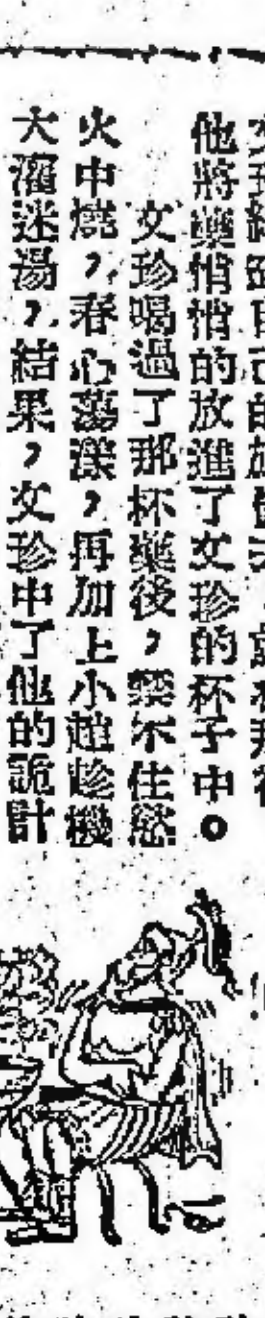 他將藥悄悄的放進了文珍的杯子中。
文珍喝過了那杯藥後，禁不住慾
火中燒，春心蕩漾，再加上小趙趁機
大灌迷湯，結果，文珍中了他的詭計